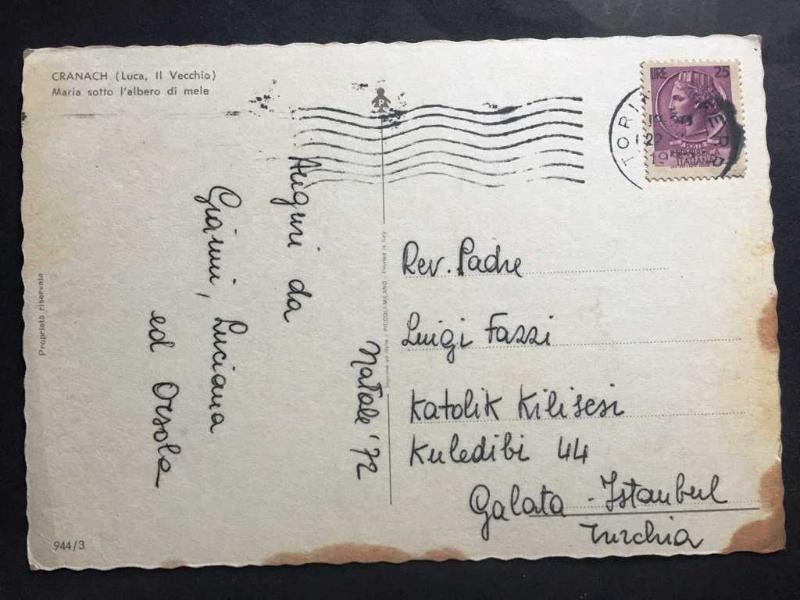 CRANACH (Luca, Il Vecchio)
Maria sotto l'albero di mele
Auguri da
Gianni, Luciana
ed Orsola
Natale '72
Rev. Padre
Luigi Fassi
Katolik Kilisesi
Kuledibi 44
Galata - Istanbul
Turchia
LIRE 25
ITALIANA
TORI
FERR
Proprietà riservata
PICCOLI-MILANO - Printed in Italy
944/3